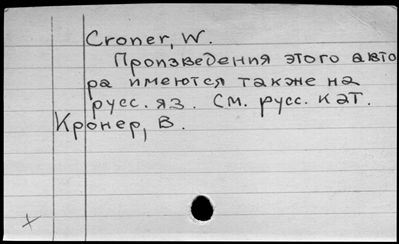 Croner, W.
Произведения этого авто
ра имеются также на
русс. яз. См. русс. кат.
Кронер, В.